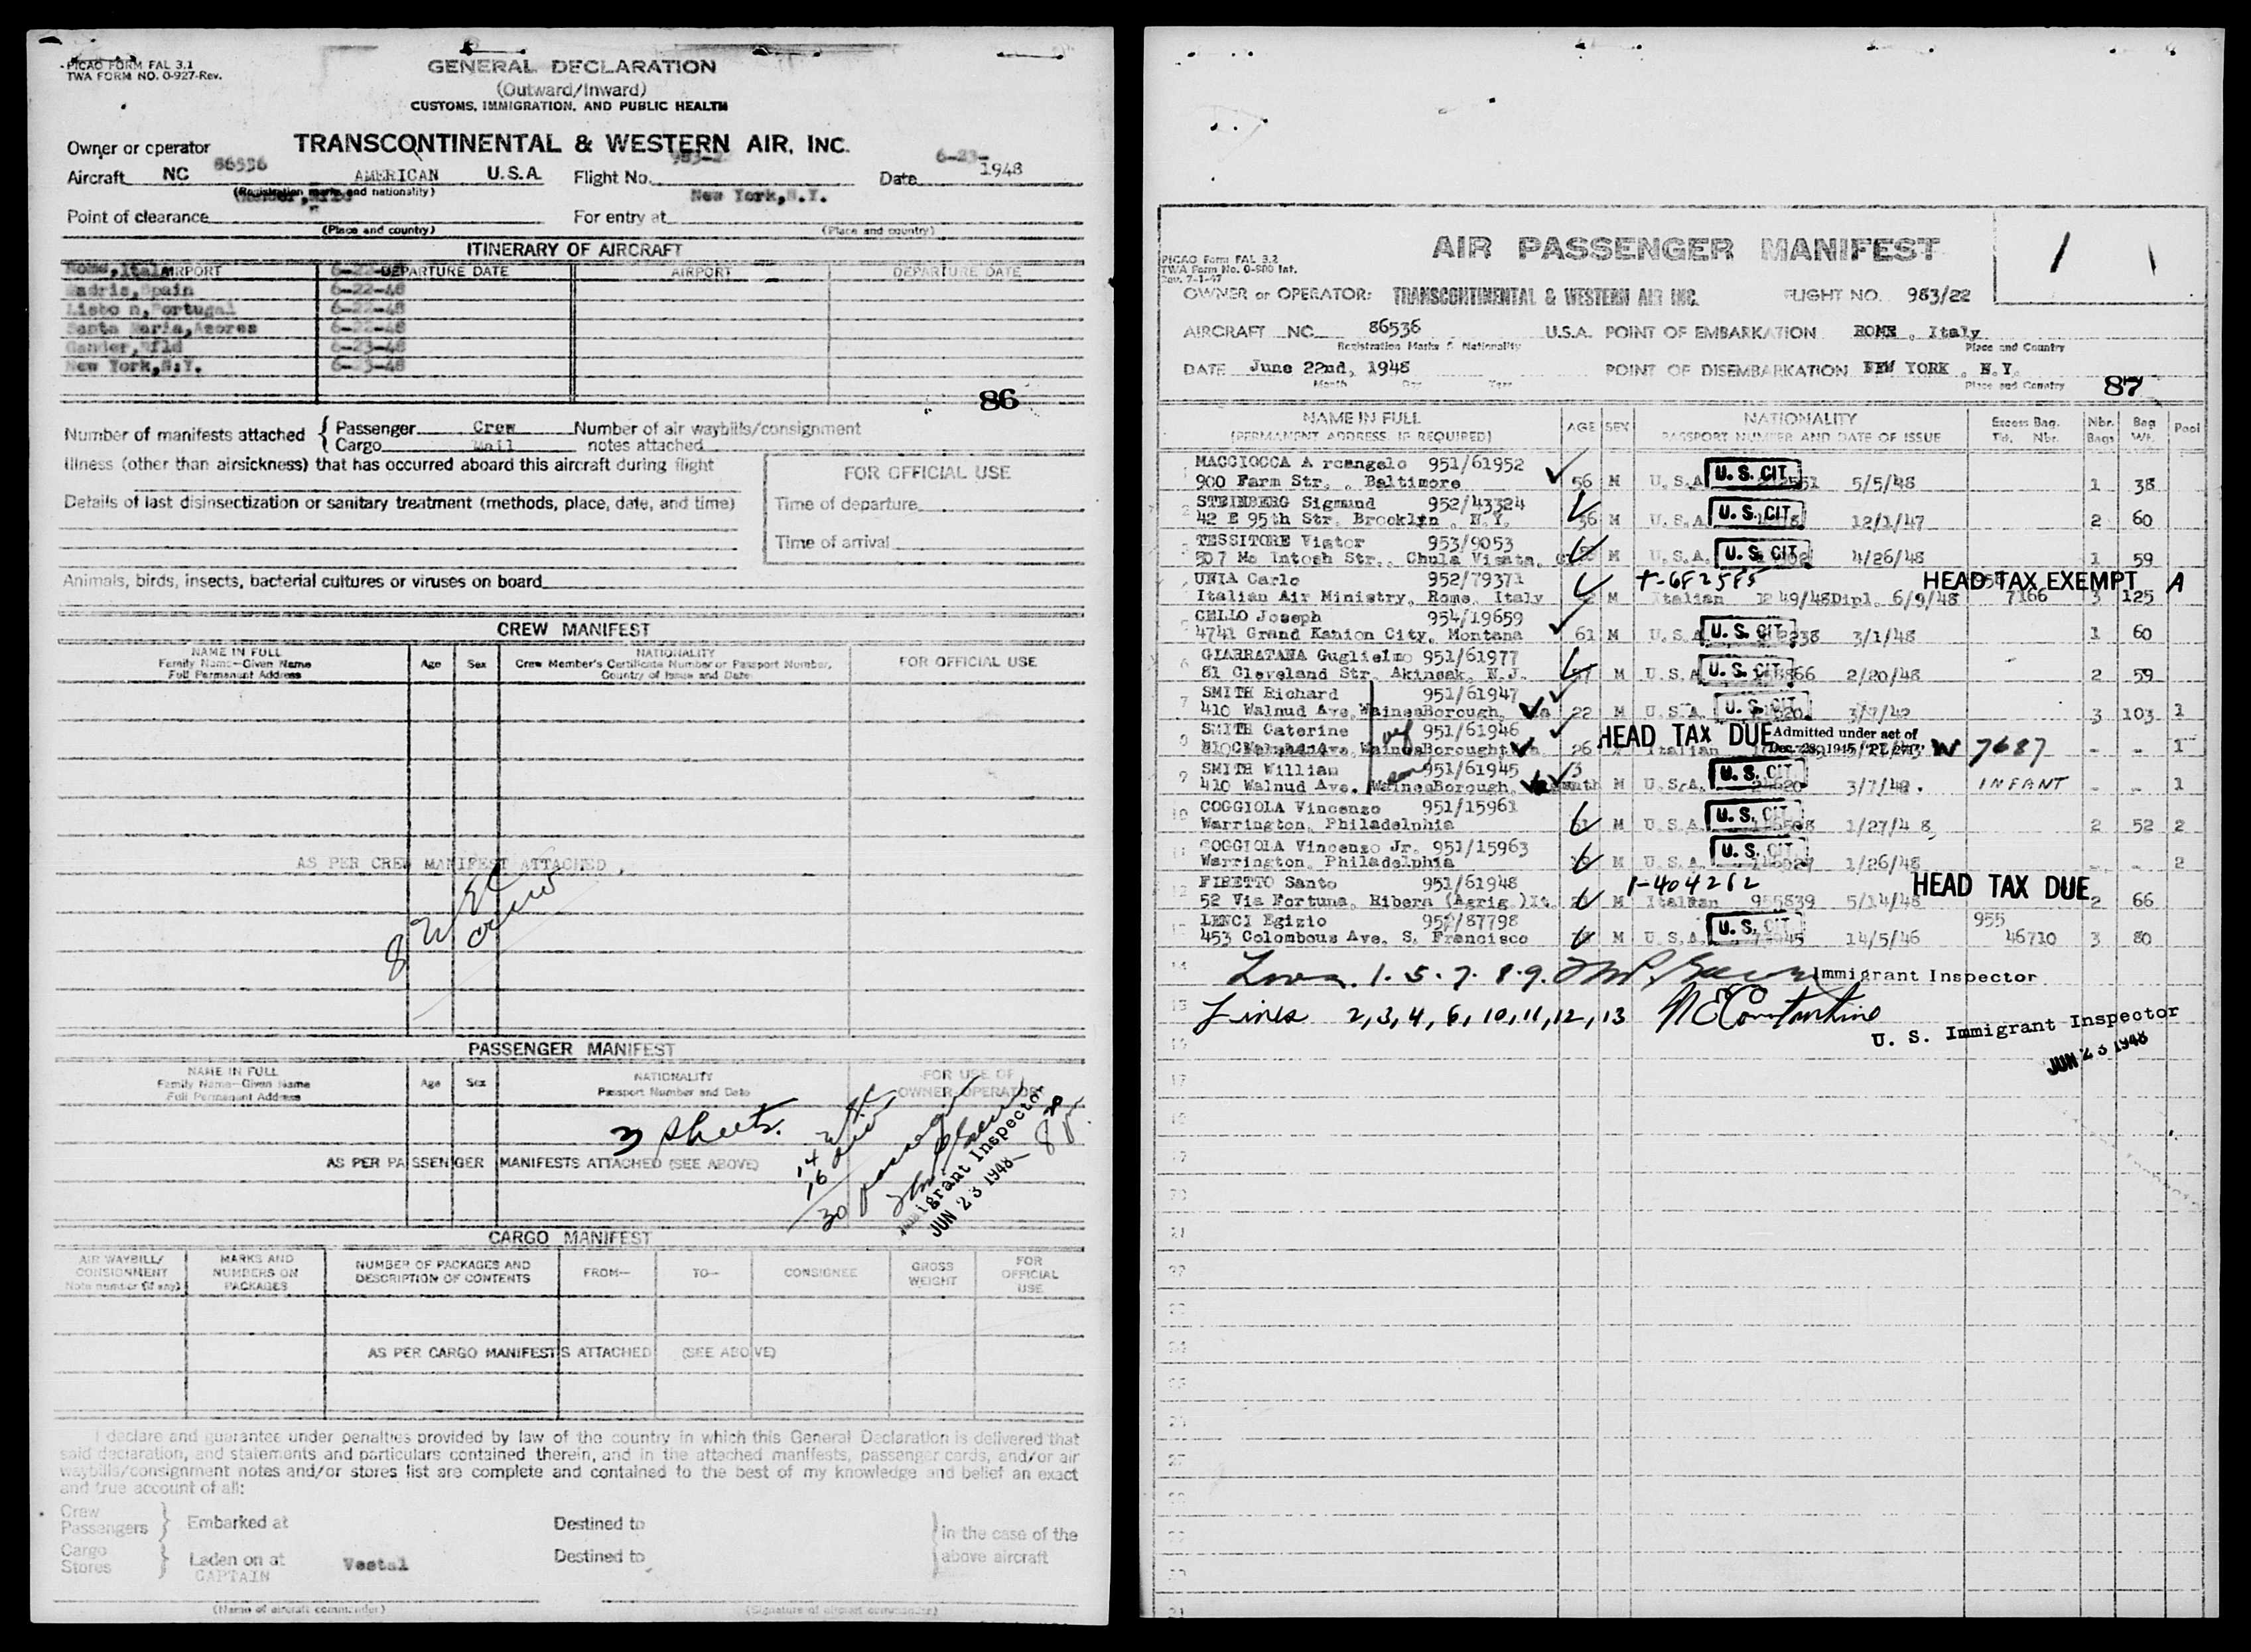 PICAO FORM FAL 3.1
TWA FORM NO. 0-927-Rev.
GENERAL DECLARATION
(Outward/Inward)
CUSTOMS, IMMIGRATION, AND PUBLIC HEALTH
Owner or operator TRANSCONTINENTAL & WESTERN AIR, INC.
Aircraft NC 86536 AMERICAN U.S.A. Flight No. Date 6-23- 1948
(Registration marks and nationality)
Point of clearance For entry at New York, N.Y.
(Place and country) (Place and country)
ITINERARY OF AIRCRAFT
AIRPORT DEPARTURE DATE AIRPORT DEPARTURE DATE
Madrid, Spain 6-22-48
Lisbo n, Portugal 6-22-48
Santa Maria, Azores 6-22-48
Gander, Nfld 6-23-48
New York, N.Y. 6-23-48
86
Number of manifests attached { Passenger Crew Number of air waybills/consignment
Cargo Mail notes attached
Illness (other than airsickness) that has occurred aboard this aircraft during flight
FOR OFFICIAL USE
Details of last disinsectization or sanitary treatment (methods, place, date, and time)
Time of departure
Time of arrival
Animals, birds, insects, bacterial cultures or viruses on board
CREW MANIFEST
NAME IN FULL
Family Name—Given Name
Full Permanent Address
Age Sex
NATIONALITY
Crew Member's Certificate Number or Passport Number,
Country of Issue and Date
FOR OFFICIAL USE
AS PER CREW MANIFEST ATTACHED
8 crew
PASSENGER MANIFEST
NAME IN FULL
Family Name—Given Name
Full Permanent Address
Age Sex
NATIONALITY
Passport Number and Date
FOR USE OF
OWNER-OPERATOR
3 sheets.
AS PER PASSENGER MANIFESTS ATTACHED (SEE ABOVE)
14
16
30 passenger
Immigrant Inspector
JUN 23 1948
CARGO MANIFEST
AIR WAYBILL/
CONSIGNMENT
Note number (if any)
MARKS AND
NUMBERS ON
PACKAGES
NUMBER OF PACKAGES AND
DESCRIPTION OF CONTENTS
FROM— TO— CONSIGNEE
GROSS
WEIGHT
FOR
OFFICIAL
USE
AS PER CARGO MANIFESTS ATTACHED (SEE ABOVE)
I declare and guarantee under penalties provided by law of the country in which this General Declaration is delivered that
said declaration, and statements and particulars contained therein, and in the attached manifests, passenger cards, and/or air
waybills/consignment notes and/or stores list are complete and contained to the best of my knowledge and belief an exact
and true account of all:
Crew
Passengers } Embarked at Destined to } in the case of the
Cargo
Stores } Laden on at Destined to above aircraft
CAPTAIN Vestal
(Name of aircraft commander) (Signature of aircraft commander)
AIR PASSENGER MANIFEST 1
PICAO Form FAL 3.2
TWA Form No. 0-800 Int.
Rev. 7-1-47
OWNER or OPERATOR: TRANSCONTINENTAL & WESTERN AIR INC. FLIGHT NO. 983/22
AIRCRAFT NC 86536 U.S.A. POINT OF EMBARKATION ROME, Italy
Registration Marks & Nationality Place and Country
DATE June 22nd, 1948 POINT OF DISEMBARKATION NEW YORK, N.Y.
Month Day Year Place and Country
87
NAME IN FULL
(PERMANENT ADDRESS, IF REQUIRED)
AGE SEX
NATIONALITY
PASSPORT NUMBER AND DATE OF ISSUE
Excess Bag.
Tkt. Nbr.
Nbr.
Bags
Bag
Wt.
Pool
1 MACCIOCCA A rcangelo 951/61952
900 Farm Str, . Baltimore 56 M U.S.A. U.S. CIT. 5/5/48 1 38
2 STEINBERG Sigmund 952/43324
42 E 95th Str. Brooklyn, N.Y. 56 M U.S.A. U.S. CIT. 12/1/47 2 60
3 TESSITORE Victor 953/9053
507 Mc Intosh Str., Chula Visata, M U.S.A. U.S. CIT. 4/26/48 1 59
4 UNIA Carlo 952/79371 HEAD TAX EXEMPT A
Italian Air Ministry, Rome, Italy M Italian Dipl. 6/9/48 7166 3 125
5 CELLO Joseph 954/19659
4741 Grand Kanion City, Montana 61 M U.S.A. U.S. CIT. 3/1/48 1 60
6 GIARRATANA Guglielmo 951/61977
81 Cleveland Str. Akinsak, N.J. M U.S.A. U.S. CIT. 2/20/48 2 59
7 SMITH Richard 951/61947
410 Walnud Ave. WainesBorough, Va 22 M U.S.A. U.S. CIT. 3 103 1
8 SMITH Caterine wf 951/61946 HEAD TAX DUE Admitted under act of
WainesBorought 26 Italian Dec. 28, 1945 "PL 271" W 7687 - - 1
9 SMITH William son 951/61945 3
410 Walnud Ave. WainesBorough, M U.S.A. U.S. CIT. 3/7/48. INFANT - - 1
10 COGGIOLA Vincenzo 951/15961
Warrington, Philadelphia 51 M U.S.A. U.S. CIT. 1/27/4 8, 2 52 2
11 COGGIOLA Vincenzo Jr. 951/15963
Warrington, Philadelphia M U.S.A. U.S. CIT. 1/26/48 - - 2
12 FIRETTO Santo 951/61948 1-404262 HEAD TAX DUE
52 Via Fortuna, Ribera (Agrig.)It. M Italian 955839 5/14/48 2 66
13 LENCI Egizio 952/87798 955
453 Colombous Ave, S. Francisco M U.S.A. U.S. CIT. 14/5/46 46710 3 80
14 Lines. 1. 5. 7. 8. 9. Immigrant Inspector
15 Lines 2, 3, 4, 6, 10, 11, 12, 13 N E Constantine
16 U. S. Immigrant Inspector
JUN 23 1948
17
18
19
20
21
22
23
24
25
26
27
28
29
30
31